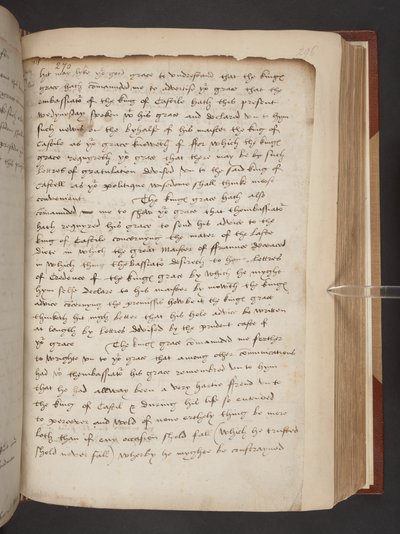 270
206
hit may lyke yor good grace to undrestand that the kings
grace hath comaunded me to advertise yor grace that the
embassiator of the king of Castile hath this present
wednysday spoken wt his grace and declared un to hym
such newes on the byhalfe of his maister the king of
Castile as yor grace knoweth of ffor which the kings
grace requyreth yor grace that there may be by such
lettres of gratulation devised un to the said king of
Castell as yor politique wisedome shall thinke moste
convenient The kings grace hath also
comaunded me to shew yor grace that thembassiator
hath requyred his grace to send his advice to the
king of Castile concernyng the mater of the laste
diete in which the great Maister of ffraunce deceaced
in which thing thembassiator desireth to have lettres
of Credence of the kings grace by which he myght
hym selfe declare to his maister by mowth the kings
advice concernyng the promisses howbeit the kings grace
thinketh hit mych better that his hole advice be written
at length by lettres devised by the prudent caste of
yor grace The kings grace comaunded me forther
to wryghte un to yor grace that among other comunications
had wt thembassiator his grace remembred un to hym
that he had allway been a very hartie ffrend un to
the king of Castil & during his life so entended
to persever and wold of none erthely thing be more
loth than if eny occasion shold fall (which he trusted
shold never fall) wherby he myghte be constrayned